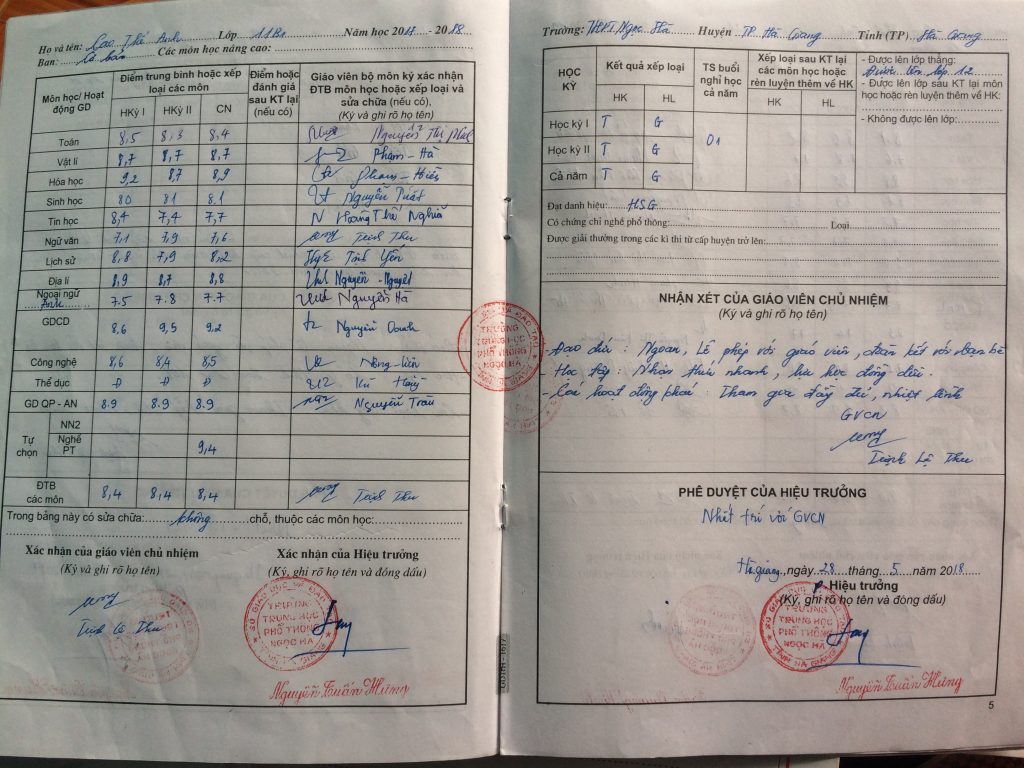 Họ và tên: Cao Thế Anh Lớp 11B1 Năm học 2017 - 2018
Ban: Cơ bản Các môn học nâng cao:
Môn học/ Hoạt động GD
Điểm trung bình hoặc xếp loại các môn
HKỳ I HKỳ II CN
Điểm hoặc đánh giá sau KT lại (nếu có)
Giáo viên bộ môn ký xác nhận ĐTB môn học hoặc xếp loại và sửa chữa (nếu có),
(Ký và ghi rõ họ tên)
Toán 8,5 8,3 8,4 Nguyễn Thị
Vật lí 8,7 8,7 8,7 Phạm - Hà
Hóa học 9,2 8,7 8,9 Phạm - Hiền
Sinh học 8.0 8.1 8.1 Nguyễn Tuất
Tin học 8,4 7,4 7,7 Hoàng Thế Nghĩa
Ngữ văn 7,1 7,9 7,6 Trịnh Thu
Lịch sử 8,8 7,9 8,2 Yến
Địa lí 8,9 8,7 8,8 Nguyễn - Nguyệt
Ngoại ngữ Anh 7.5 7.8 7.7 Nguyễn Hà
GDCD 8,6 9,5 9,2 Nguyễn Doanh
Công nghệ 8,6 8,4 8,5 Nông - Viên
Thể dục Đ Đ Đ
GD QP - AN 8.9 8.9 8.9 Nguyễn Trâu
Tự chọn
NN2
Nghề PT 9,4
ĐTB các môn 8,4 8,4 8,4 Trịnh Thu
Trong bảng này có sửa chữa: không chỗ, thuộc các môn học:
Xác nhận của giáo viên chủ nhiệm
(Ký và ghi rõ họ tên)
Trịnh Lệ Thu
Xác nhận của Hiệu trưởng
(Ký, ghi rõ họ tên và đóng dấu)
SỞ GIÁO DỤC VÀ ĐÀO TẠO
TRƯỜNG
TRUNG HỌC
PHỔ THÔNG
NGỌC HÀ
TỈNH HÀ GIANG
Nguyễn Tuấn Hưng
Trường: THPT Ngọc Hà Huyện TP. Hà Giang Tỉnh (TP) Hà Giang
HỌC KỲ
Kết quả xếp loại
HK HL
TS buổi nghỉ học cả năm
Xếp loại sau KT lại các môn học hoặc rèn luyện thêm về HK
HK HL
Học kỳ I T G
Học kỳ II T G
Cả năm T G
01
- Được lên lớp thẳng:
Được lên lớp 12
- Được lên lớp sau KT lại môn học hoặc rèn luyện thêm về HK:
- Không được lên lớp:
Đạt danh hiệu: HSG
Có chứng chỉ nghề phổ thông: Loại
Được giải thưởng trong các kì thi từ cấp huyện trở lên:
NHẬN XÉT CỦA GIÁO VIÊN CHỦ NHIỆM
(Ký và ghi rõ họ tên)
- Đạo đức: Ngoan, Lễ phép với giáo viên, đoàn kết với bạn bè
- Học tập: Nhận thức nhanh, lực học đồng đều.
- Các hoạt động khác: Tham gia đầy đủ, nhiệt tình
GVCN
Trịnh Lệ Thu
PHÊ DUYỆT CỦA HIỆU TRƯỞNG
Nhất trí với GVCN
Hà Giang, ngày 28 tháng 5 năm 2018
P. Hiệu trưởng
(Ký, ghi rõ họ tên và đóng dấu)
SỞ GIÁO DỤC VÀ ĐÀO TẠO
TRƯỜNG
TRUNG HỌC
PHỔ THÔNG
NGỌC HÀ
TỈNH HÀ GIANG
Nguyễn Tuấn Hưng
5